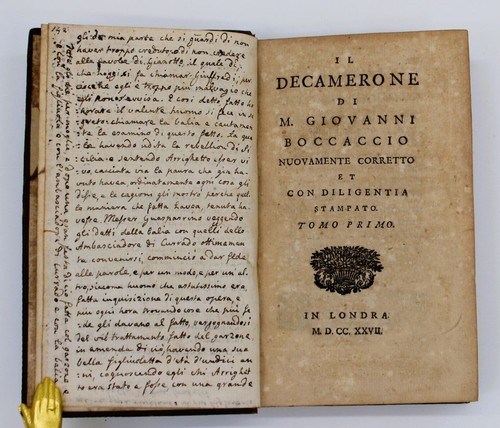 142
gli da mia parte che si guardi di non
haver troppo creduto, o di non credere
alle favole di Gianotto, il quale di
che hoggi si fa chiamar Giuffredi, per
cioche egli è troppo più malvagio che
egli non s'avvisa. E così detto fatto ho
norare il valente huomo si fece in se
greto chiamare la balia e cautamen
te la esamino di questo fatto. La qua
le havendo udita la rebellion di Ci
cilia e sentendo Arrighetto esser vi
vo, cacciata via la paura che già ha
vuto haveva ordinatamente ogni cosa gli
disse, e le cagioni gli mostrò perchè quel
la maniera che fatta haveva, tenuta ha
vesse. Messer Guasparrino veggendo
gli detti della balia con quelli dello
Ambasciadore di Currado ottimamen
te convenirsi, cominciò a dar fede
alle parole, e per un modo, e per un al
tro, siccome huomo che astutissimo era
fatta inquisizione di questa opera, e
più ogni hora trovando cose che più fe
de gli davano al fatto, vergognandosi
del vil trattamento fatto del garzone,
in amenda di ciò, havendo una sua
bella figlioletta d'età d'undici an
ni, cognoscendo egli chi Arrighet
to era stato e fosse, con una grande
IL
DECAMERONE
DI
M. GIOVANNI
BOCCACCIO
NUOVAMENTE CORRETTO
ET
CON DILIGENTIA
STAMPATO.
TOMO PRIMO.
IN LONDRA
M. D. CC. XXVII.